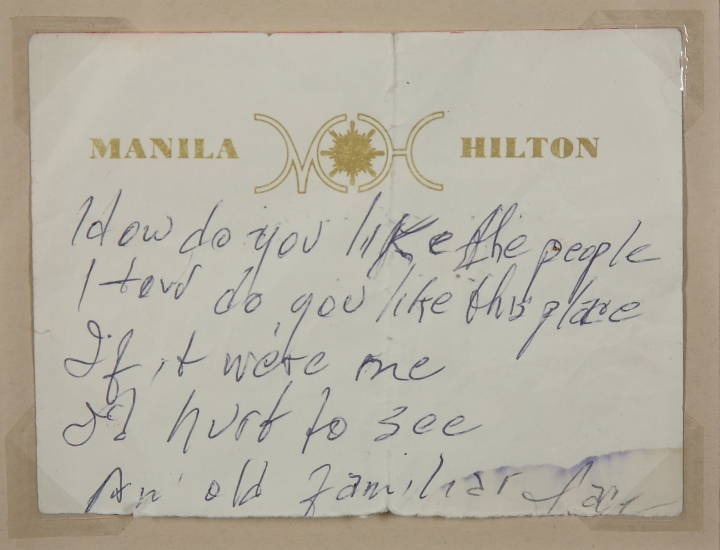 MANILA MH HILTON
How do you like the people
How do you like this place
If it were me
I'd hurt to see
An' old familiar face